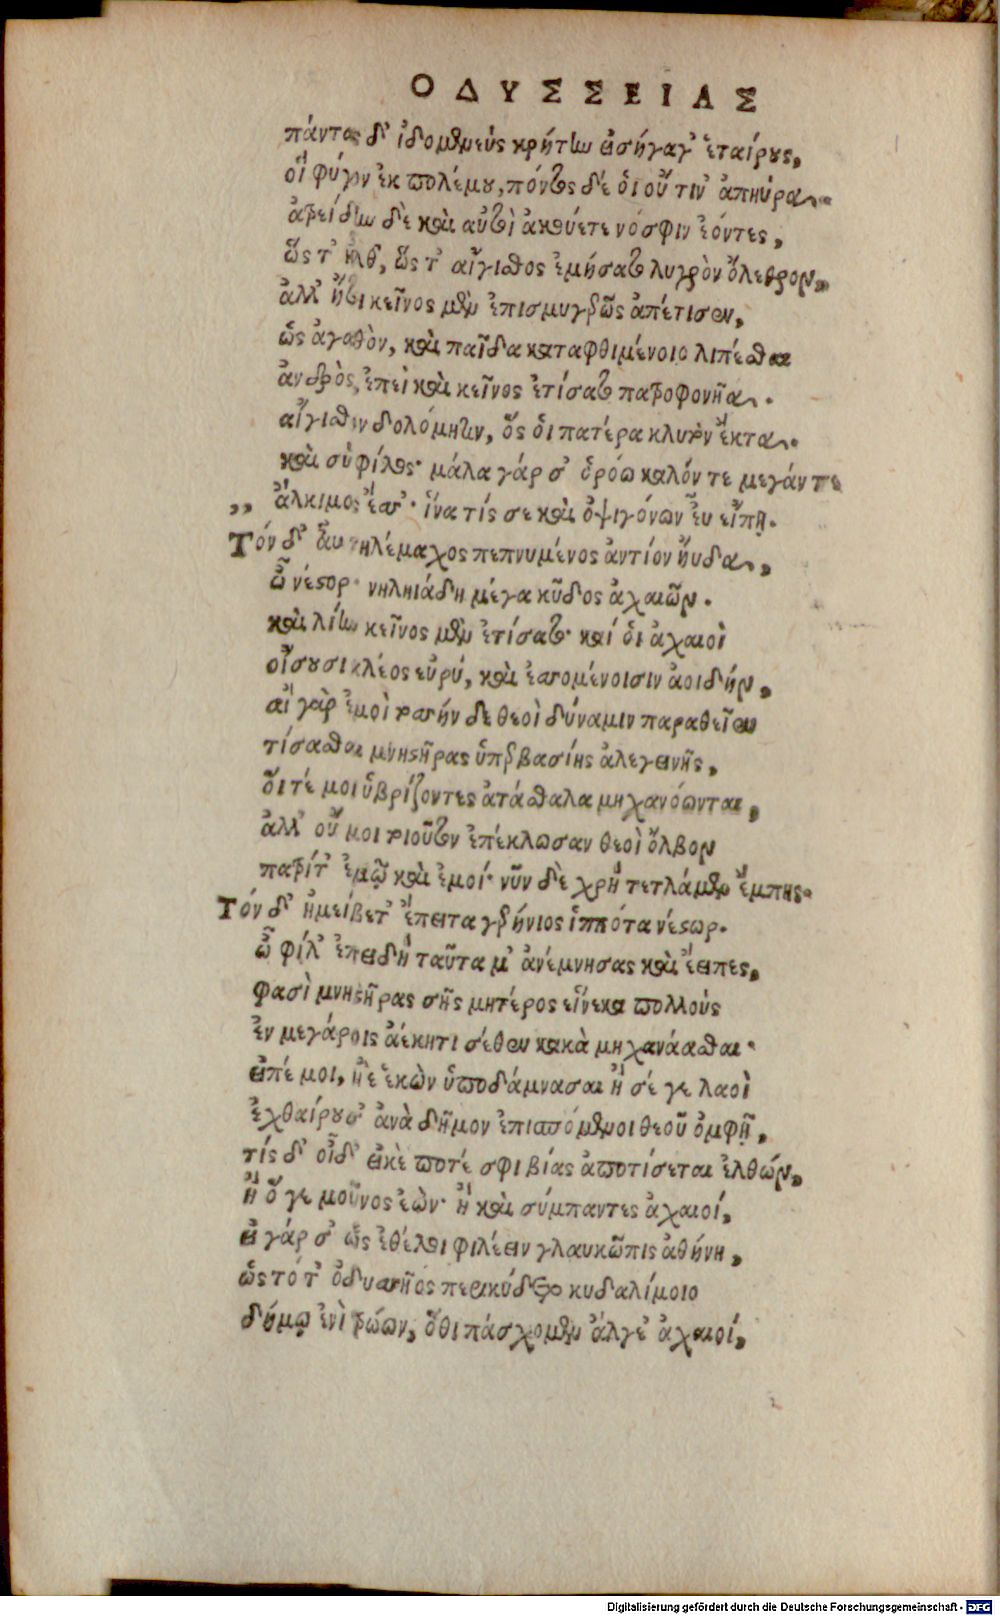 ΟΔΥΣΣΕΙΑΣ
πάντας δ' ἰδομενεὺς κρήτην εἰσήγαγ' ἑταίρους,
οἳ φύγον ἐκ πολέμου, πόντος δέ ὁι οὔ τιν' ἀπηύρα.
ἀτρείδην δὲ καὶ αὐτοὶ ἀκούετε νόσφιν ἐόντες,
ὥς τ' ἦλθ', ὥς τ' αἴγισθος ἐμήσατο λυγρὸν ὄλεθρον,
ἀλλ' ἤτοι κεῖνος μὲν ἐπισμυγερῶς ἀπέτισεν,
ὡς ἀγαθὸν, καὶ παῖδα καταφθιμένοιο λιπέσθαι
ἀνδρὸς, ἐπεὶ καὶ κεῖνος ἐτίσατο πατροφονῆα.
αἴγισθον δολόμητιν, ὅς ὁι πατέρα κλυτὸν ἔκτα.
καὶ σὺ φίλος· μάλα γάρ σ' ὁρόω καλόν τε μεγάν τε
,, ἄλκιμος ἔσσ'· ἵνα τίς σε καὶ ὀψιγόνων ἐῢ εἴπῃ.
Τόν δ' ἆυ τηλέμαχος πεπνυμένος ἀντίον ἤυδα,
ὦ νέστορ· νηληιάδη μέγα κῦδος ἀχαιῶν.
καὶ λίην κεῖνος μὲν ἐτίσατο· καί ὁι ἀχαιοὶ
οἴσουσι κλέος εὐρύ, καὶ ἐσσομένοισιν ἀοιδήν,
αἲ γὰρ ἐμοὶ τοσσήν δε θεοὶ δύναμιν παραθεῖεν
τίσασθαι μνηστῆρας ὑπερβασίης ἀλεγεινῆς,
ὅιτέ μοι ὑβρίζοντες ἀτάσθαλα μηχανόωνται,
ἀλλ' οὔ μοι τοιοῦτον ἐπέκλωσαν θεοὶ ὄλβον
πατρί τ' ἐμῷ καὶ ἐμοί· νῦν δὲ χρὴ τετλάμεν ἔμπης·
Τόν δ' ἠμείβετ' ἔπειτα γερήνιος ἱππότα νέστωρ.
ὦ φίλ' ἐπειδὴ ταῦτα μ' ἀνέμνησας καὶ ἔειπες,
φασὶ μνηστῆρας σῆς μητέρος εἵνεκα πολλοὺς
ἐν μεγάροις ἀέκητι σέθεν κακὰ μηχανάασθαι·
εἰπέ μοι, ἠὲ ἑκὼν ὑποδάμνασαι ἢ σέ γε λαοὶ
ἐχθαίρουσ' ἀνὰ δῆμον ἐπισπόμενοι θεοῦ ὀμφῇ,
τίς δ' οἶδ' εἰκέ ποτέ σφι βίας ἀποτίσεται ἐλθών,
ἢ ὅ γε μοῦνος ἐὼν· ἢ καὶ σύμπαντες ἀχαιοί,
εἰ γάρ σ' ὣς ἐθέλοι φιλέειν γλαυκῶπις ἀθήνη,
ὡς τότ' ὀδυσσῆος περικήδετο κυδαλίμοιο
δήμῳ ἐνὶ τρώων, ὅθι πάσχομεν ἄλγε' ἀχαιοί,
Digitalisierung gefördert durch die Deutsche Forschungsgemeinschaft - DFG